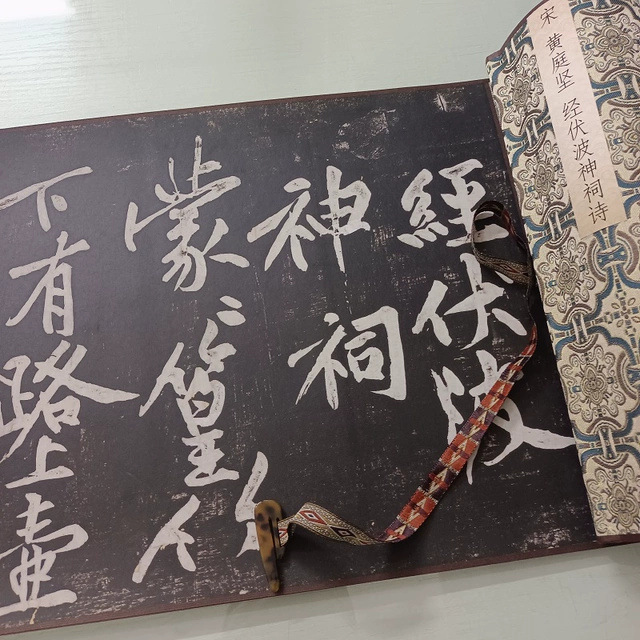 宋 黄庭坚 经伏波神祠诗
經伏波
神祠
蒙〻篁竹
下有路上壺